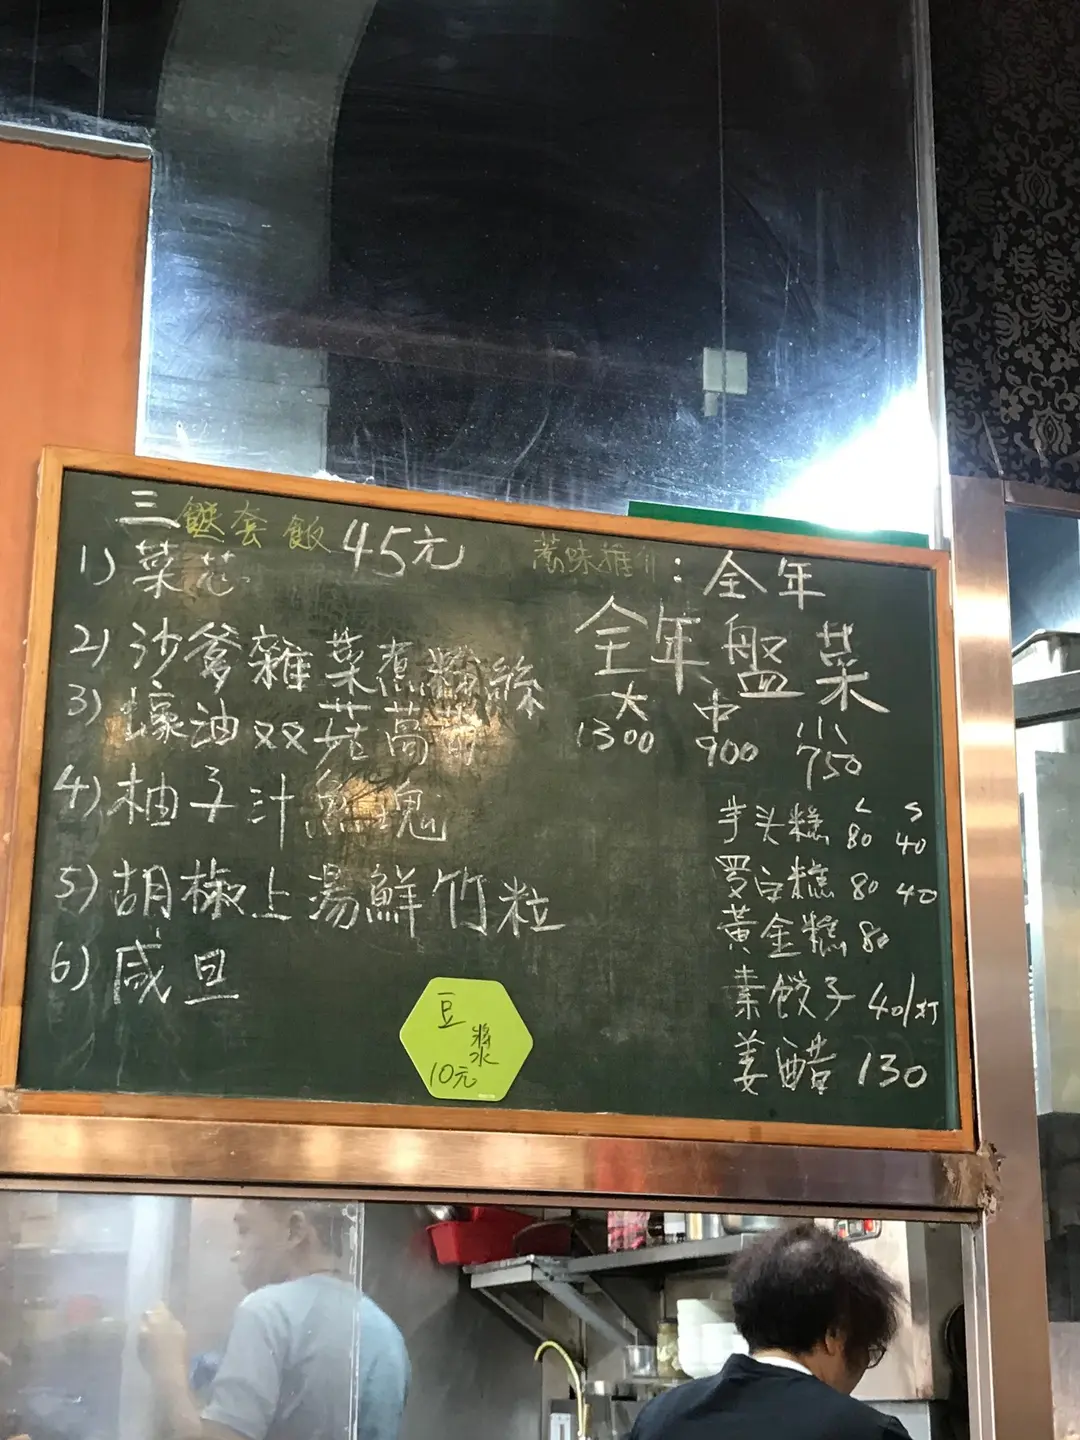 三餸套飯45元
1) 菜芯
2) 沙爹雜菜煮粉絲
3) 蠔油双菇萵筍
4) 柚子汁魚塊
5) 胡椒上湯鮮竹粒
6) 咸旦
豆漿
10元
素味推介:全年
全年盤菜
大 中 小
1300 900 750
L S
芋头糕 80 40
罗白糕 80 40
黃金糕 80
素餃子 40/打
姜醋 130